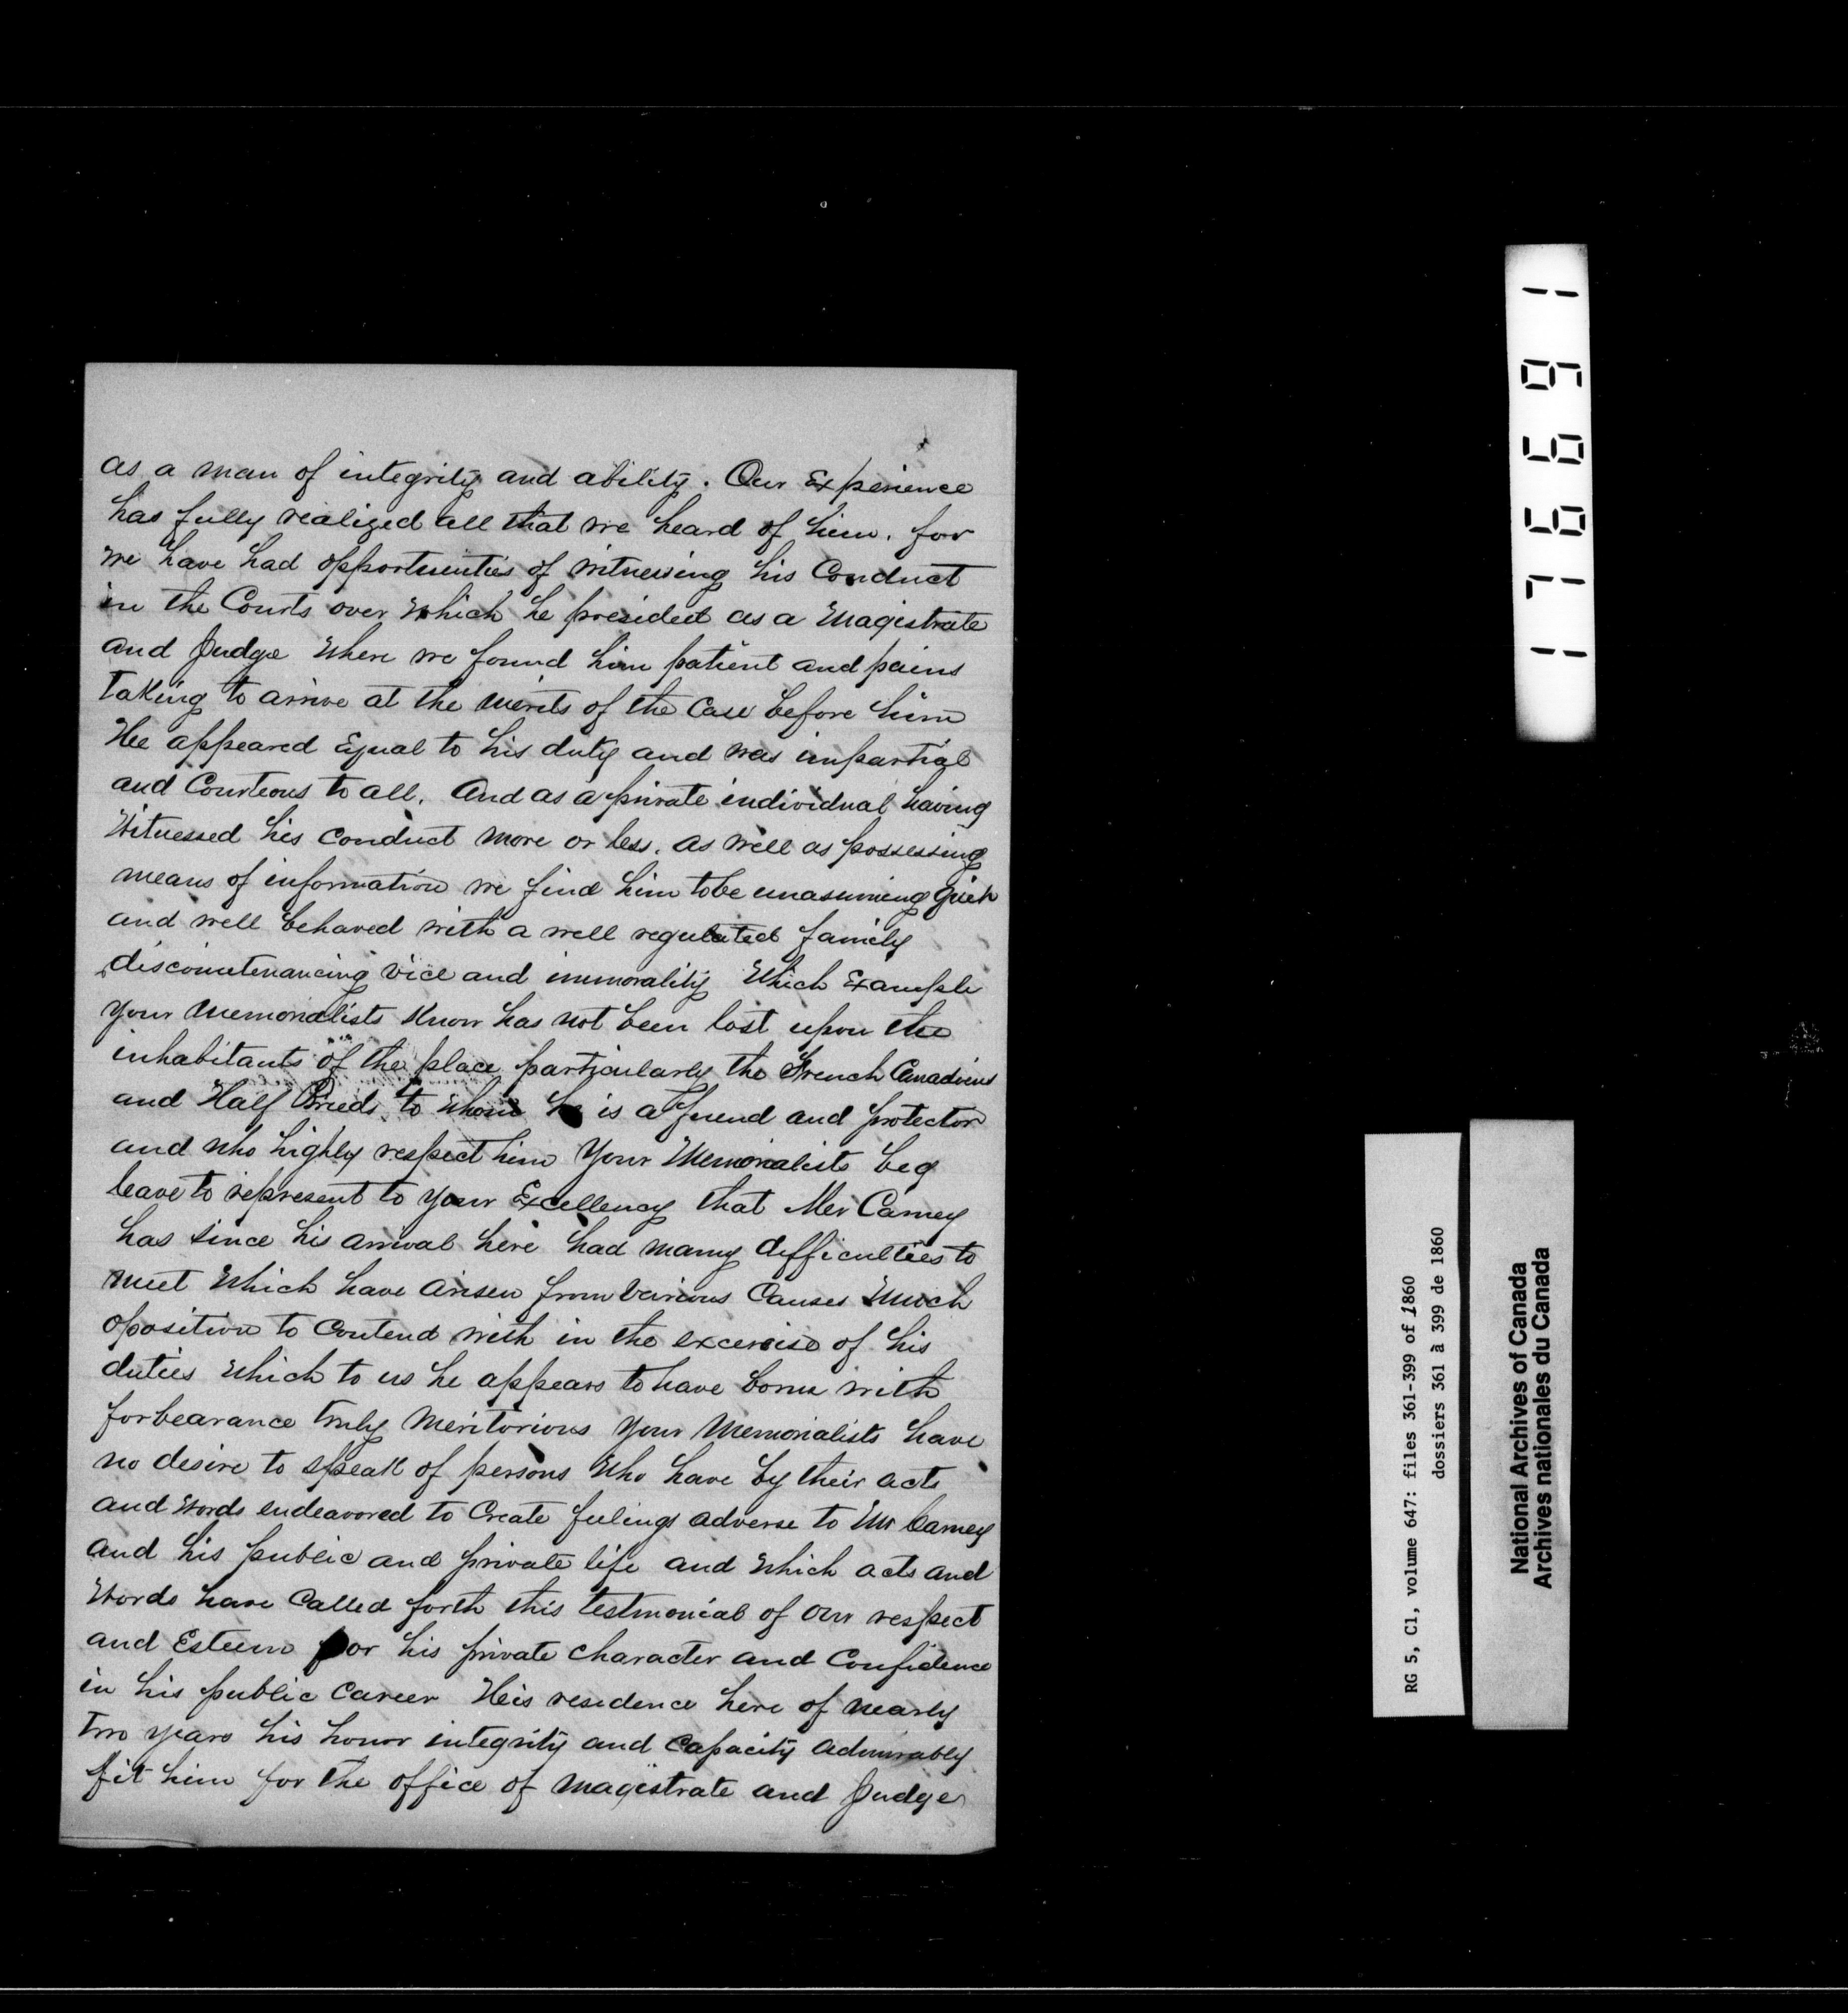 as a man of integrity and ability. Our Experience
has fully realized all that we heard of him. for
we have had opportunities of witnessing his Conduct
in the Courts over which he presided as a Magistrate
and Judge Where we found him patient and pains
taking to arrive at the merits of the Case before him
He appeared Equal to his duty and was impartial
and Courteous to all. And as a private individual having
Witnessed his Conduct more or less. as well as possessing
means of information we find him to be unasuming
and well behaved with a well regulated family
discountenancing vice and immorality Which Example
your Memorialists Know has not been lost upon the
inhabitants of the place particularly the French Canadiens
and Half Breeds to whom he is a friend and protector
and who highly respect him Your Memorialists beg
leave to represent to your Excellency that Mr Carney
has since his arrival here had many difficulties to
meet Which have arisen from various Causes Much
oposition to Contend with in the excercise of his
duties Which to us he appears to have born with
forbearance truly Meritorious Your Memorialists have
no desire to speak of persons Who have by their acts
and Words endeavored to Create feelings adverse to Mr Carney
and his public and private life and which acts and
Words have Called forth this testmonial of our respect
and Esteem for his private character and Confidence
in his public Career His residence here of nearly
two years his honor integrity and Capacity admirably
fit him for the office of magistrate and Judge
176691
RG 5, C1, volume 647: files 361-399 of 1860
dossiers 361 à 399 de 1860
National Archives of Canada
Archives nationales du Canada